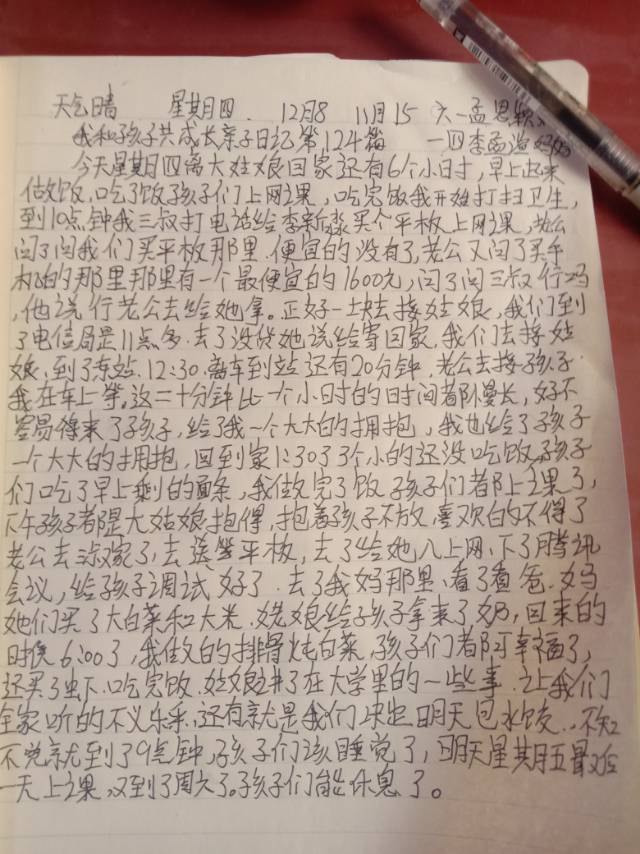 天气晴 星期四 12月8 11月15 六一孟思颖
我和孩子共成长亲子日记第124篇 一四李孟浩妈妈
今天星期四离大姑娘回家还有6个小时,早上起来
做饭,吃了饭孩子们上网课,吃完饭我开始打扫卫生,
到10点钟我三叔打电话给李新淼买个平板上网课,老公
问了问我们买平板那里.便宜的没有了,老公又问了买手
机的那里那里有一个最便宜的1600元,问了问三叔行吗
,他说行老公去给她拿。正好一块去接姑娘,我们到
了电信局是11点多.去了没货她说给寄回家.我们去接姑
娘,到了东站.12:30.离车到站还有20分钟.老公去接孩子.
我在车上等。这二十分钟比一个小时的时间都漫长,好不
容易得来了孩子,给了我一个大大的拥抱,我也给了孩子
一个大大的拥抱,回到家1:30了3个小的还没吃饭,孩子
们吃了早上剩的面条,我做完了饭孩子们都上课了,
下午孩子都是大姑娘抱得,抱着孩子不放,喜欢的不得了
老公去叔家了,去送平板,去了给她入上网.下了腾讯
会议,给孩子调试好了.去了我妈那里.看了看爸.妈
她们买了大白菜和大米.姥娘给孩子拿来了奶,回来的
时候6:00了,我做的排骨炖白菜,孩子们都可幸福了,
还买了虾.吃完饭.姑娘讲了在大学里的一些事.让我们
全家听的不乐乎.还有就是我们决定明天包水饺..不知
不觉就到了9点钟,孩子们该睡觉了,明天星期五最后
一天上课,又到了周六了。孩子们能休息了。